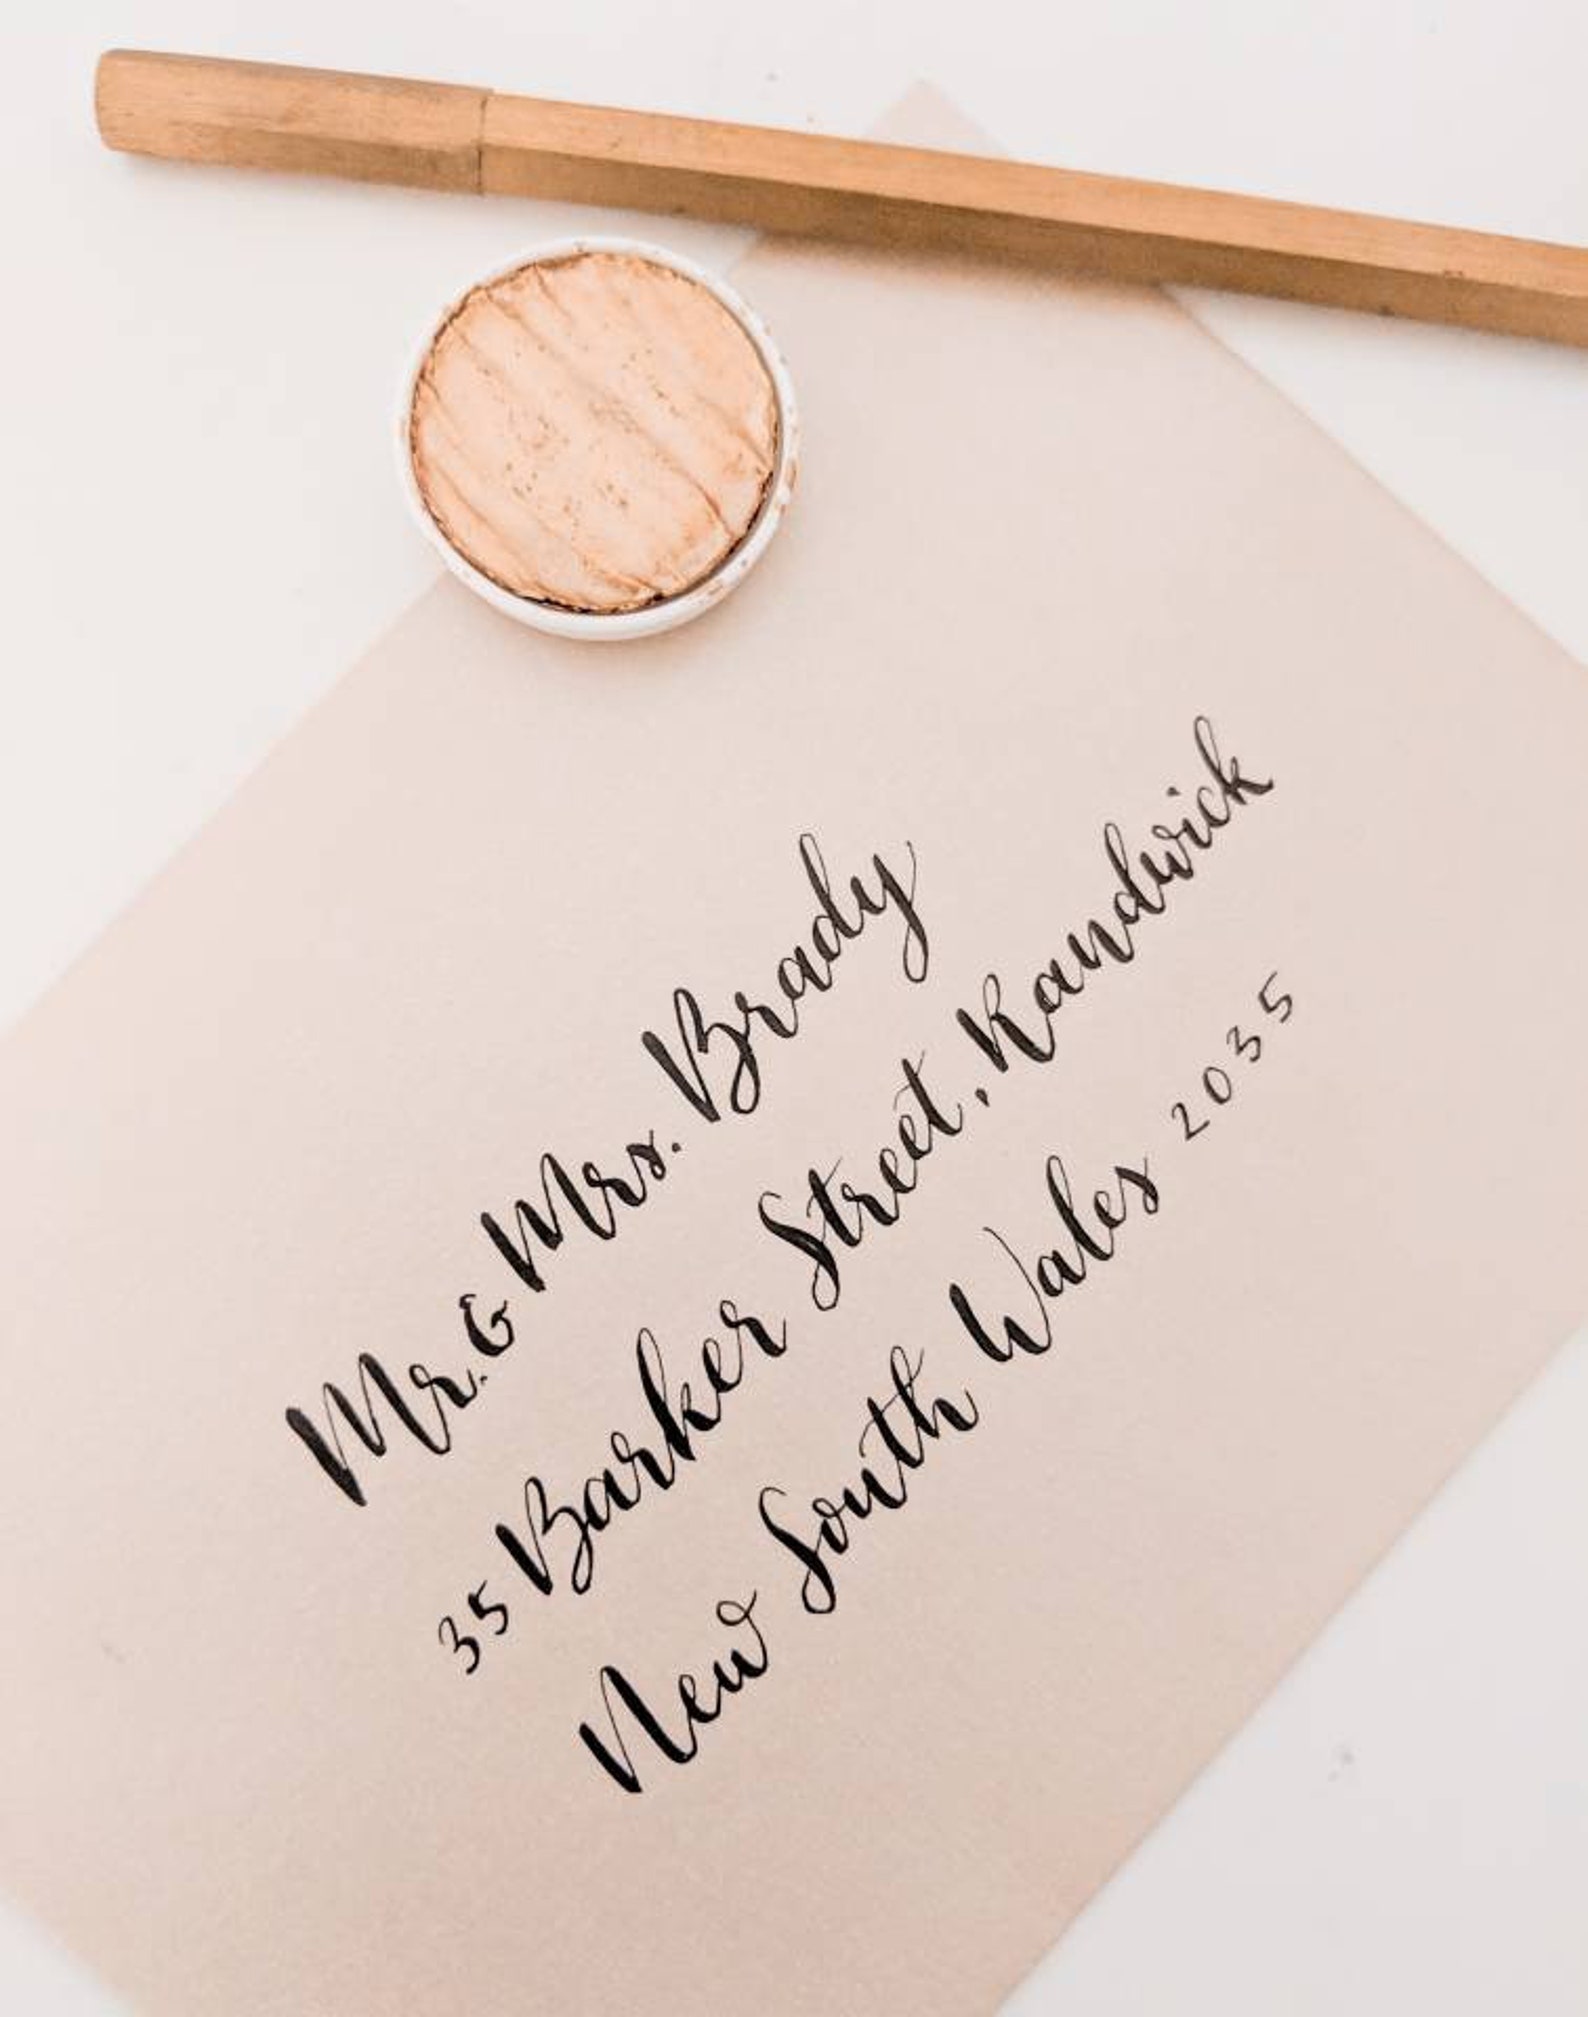 Mr. & Mrs. Brady
35 Barker Street, Randwick
New South Wales 2035